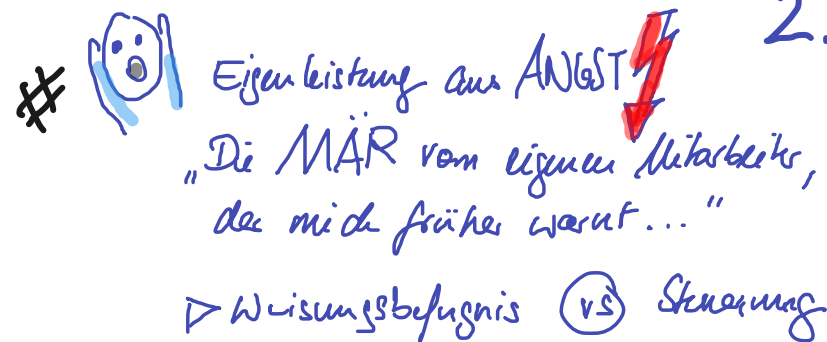 2.
# Eigenleistung aus ANGST
„Die MÄR vom eigenen Mitarbeiter,
der mich früher warnt..."
▷ Weisungsbefugnis vs Steuerung